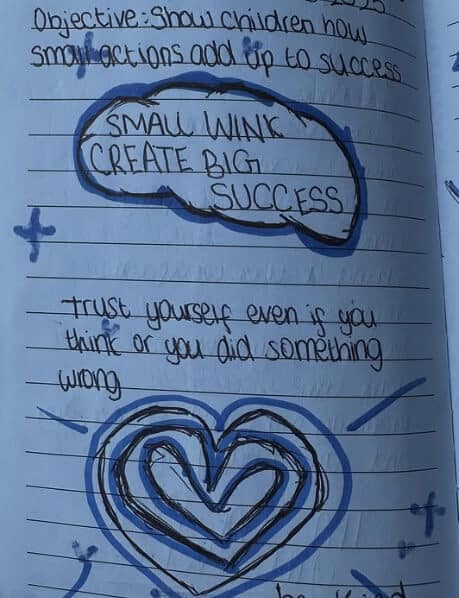 Objective: Show children how
small actions add up to success
SMALL WINK
CREATE BIG
SUCCESS
Trust yourself even if you
think or you did something
wrong
be kind